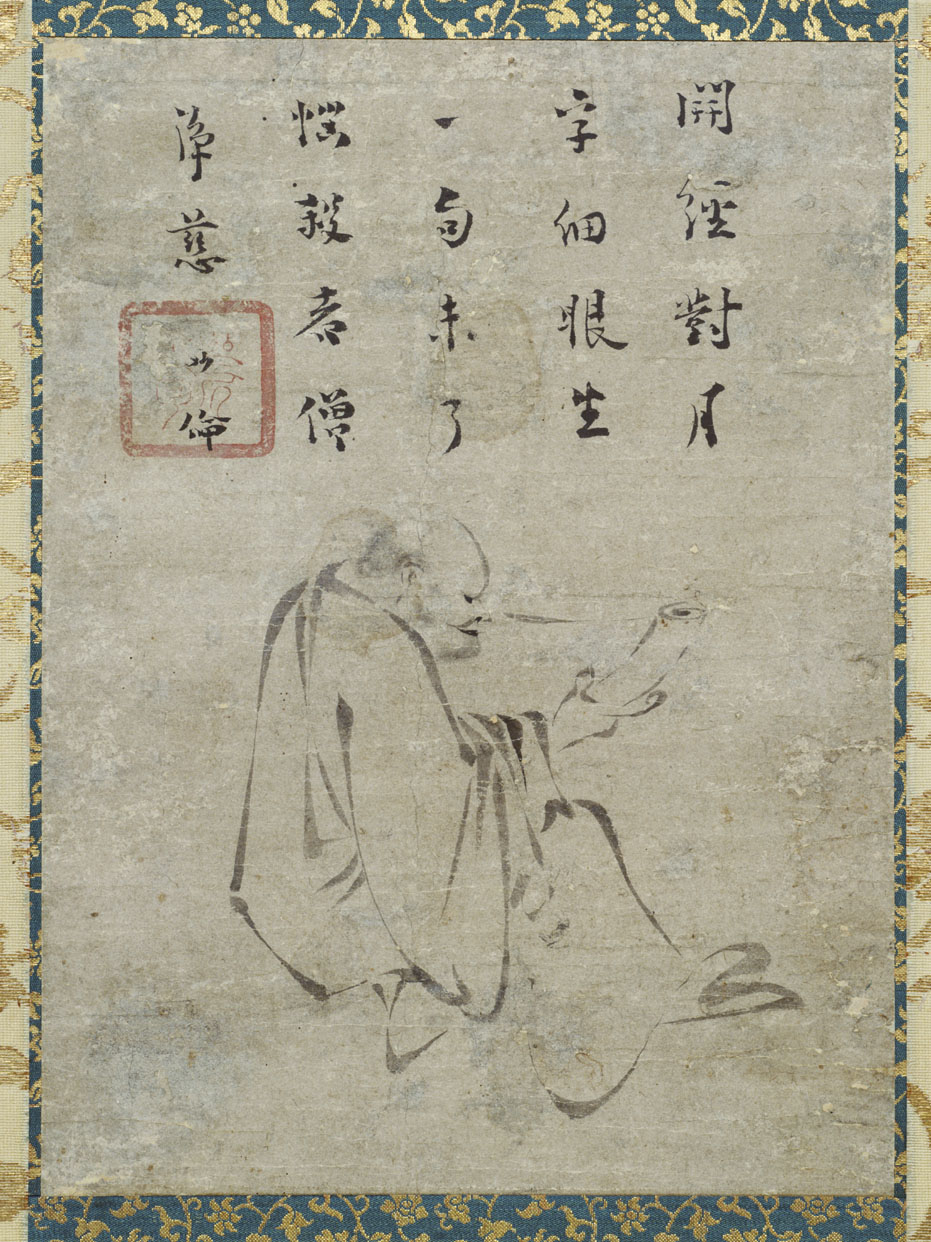 開經對月
字細眼生
一句未了
惱殺者僧
淨慈
妙倫